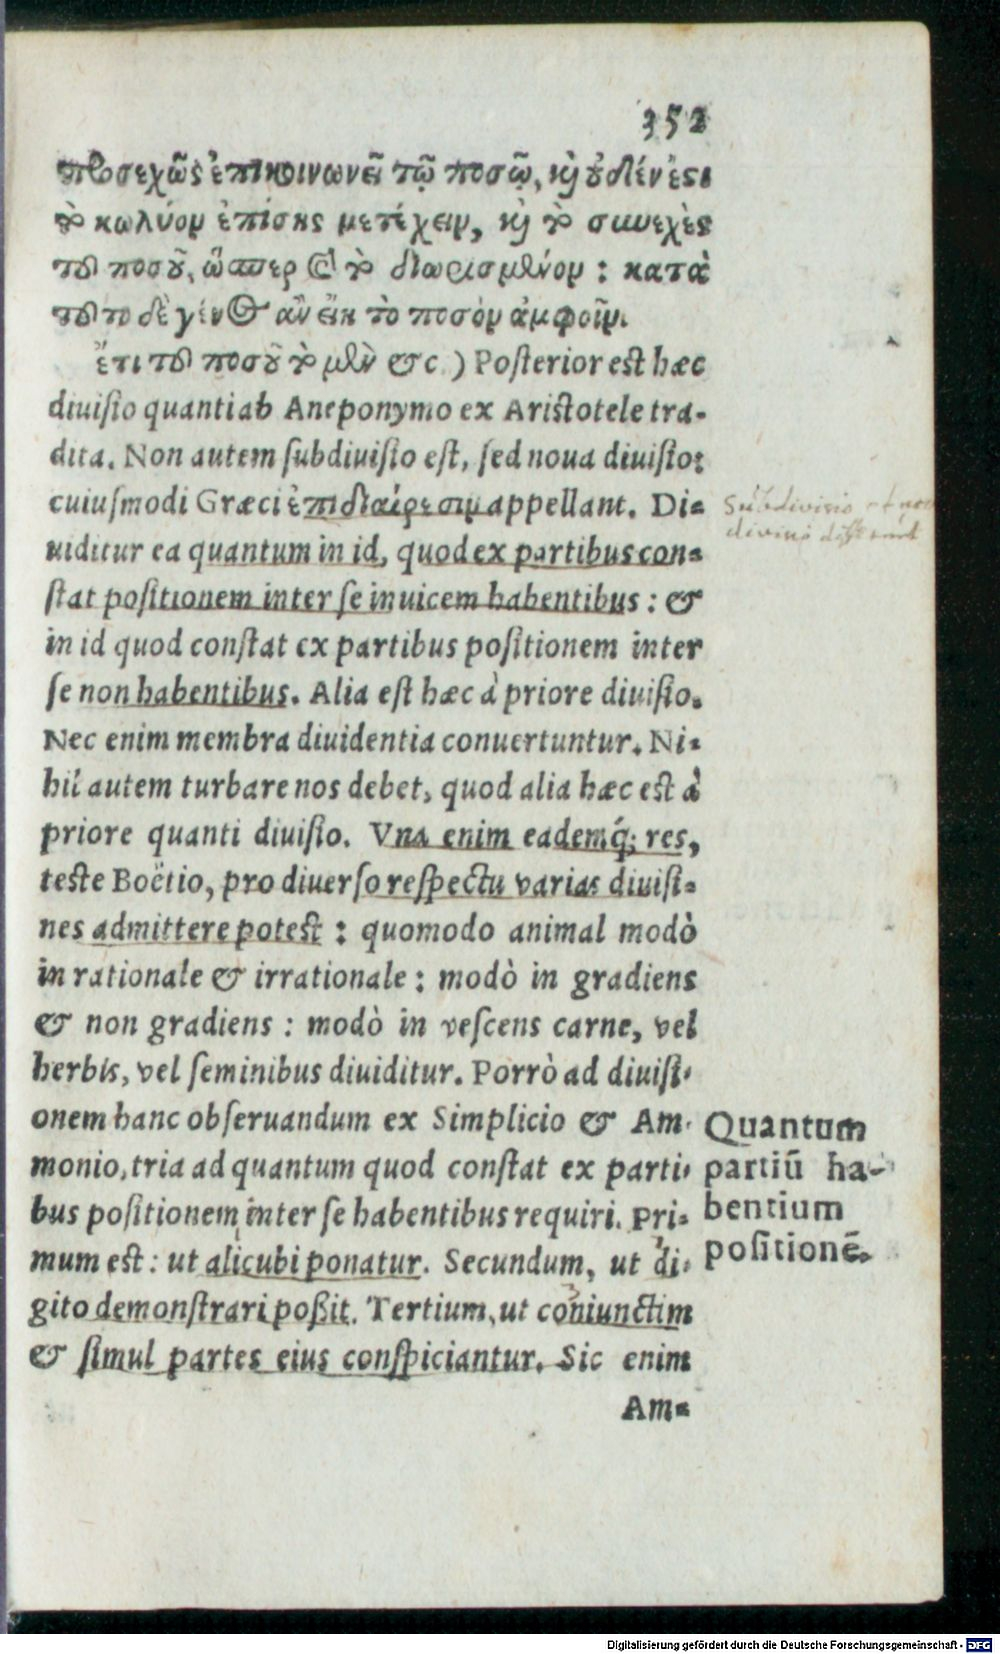 352
προσεχῶς ἐπικοινωνεῖ τῷ ποσῷ, καὶ οὐδέν ἐςι
τὸ κωλύον ἐπίσης μετέχειν, καὶ τὸ συνεχὲς
τοῦ ποσοῦ, ὥσπερ καὶ τὸ διωρισμένον : κατὰ
τοῦτο δὲ γένος ἂν εἴη τὸ ποσὸν ἀμφοῖν.
ἔτι τοῦ ποσοῦ τὸ μὲν &c ) Posterior est hæc
diuisio quanti ab Aneponymo ex Aristotele tra-
dita. Non autem subdiuisio est, sed noua diuisio:
cuiusmodi Græci ἐπιδιαίρεσιν appellant. Di-
uiditur ea quantum in id, quod ex partibus con-
stat positionem inter se inuicem habentibus : &
in id quod constat ex partibus positionem inter
se non habentibus. Alia est hæc à priore diuisio.
Nec enim membra diuidentia conuertuntur. Ni-
hil autem turbare nos debet, quod alia hæc est à
priore quanti diuisio. Vna enim eademq́; res,
teste Boëtio, pro diuerso respectu varias diuisi-
nes admittere potest : quomodo animal modò
in rationale & irrationale : modò in gradiens
& non gradiens : modò in vescens carne, vel
herbis, vel seminibus diuiditur. Porrò ad diuisi-
onem hanc obseruandum ex Simplicio & Am-
monio, tria ad quantum quod constat ex parti-
bus positionem inter se habentibus requiri. Pri-
mum est : ut alicubi ponatur. Secundum, ut di-
gito demonstrari poßit. Tertium, ut coniunctim
& simul partes eius conspiciantur. Sic enim
Am-
Subdivisio
divisio
Quantum
partiū ha-
bentium
positionē.
Digitalisierung gefördert durch die Deutsche Forschungsgemeinschaft - DFG